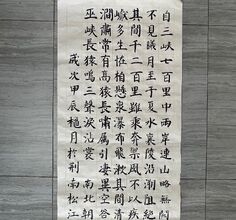 自三峽七百里中兩岸連山略無闕
不見曦月至于夏水襄陵沿泝阻絕
其間千二百里雖乘奔禦風不以疾
巘多生怪柏懸泉瀑布飛漱其間清
澗肅常有高猿長嘯屬引淒異空谷
巫峽長猿鳴三聲淚沾裳 南北朝
歲次甲辰穐月於荆南松江